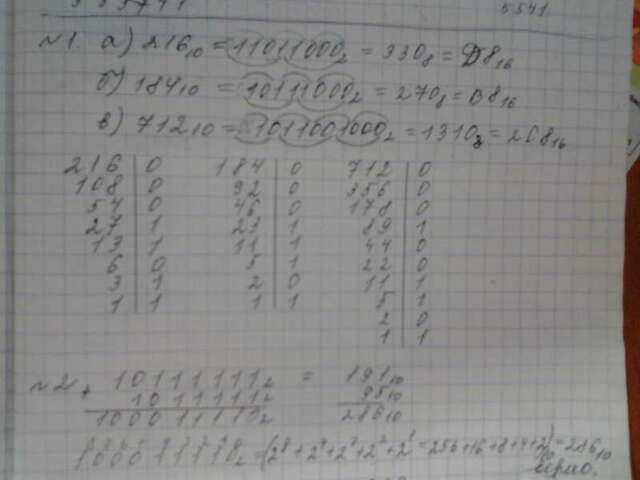 5541
№1. а) 216₁₀ = 11011000₂ = 330₈ = D8₁₆
б) 184₁₀ = 10111000₂ = 270₈ = B8₁₆
в) 712₁₀ = 1011001000₂ = 1310₈ = 2C8₁₆
216 | 0 184 | 0 712 | 0
108 | 0 92 | 0 356 | 0
54 | 0 46 | 0 178 | 0
27 | 1 23 | 1 89 | 1
13 | 1 11 | 1 44 | 0
6 | 0 5 | 1 22 | 0
3 | 1 2 | 0 11 | 1
1 | 1 1 | 1 5 | 1
2 | 0
1 | 1
№2 + 10111111₂ = 191₁₀
1011111₂ 95₁₀
100011111₂ 286₁₀
100011110₂ = (2⁸ + 2⁴ + 2³ + 2² + 2¹ = 256+16+8+4+2) = 286₁₀